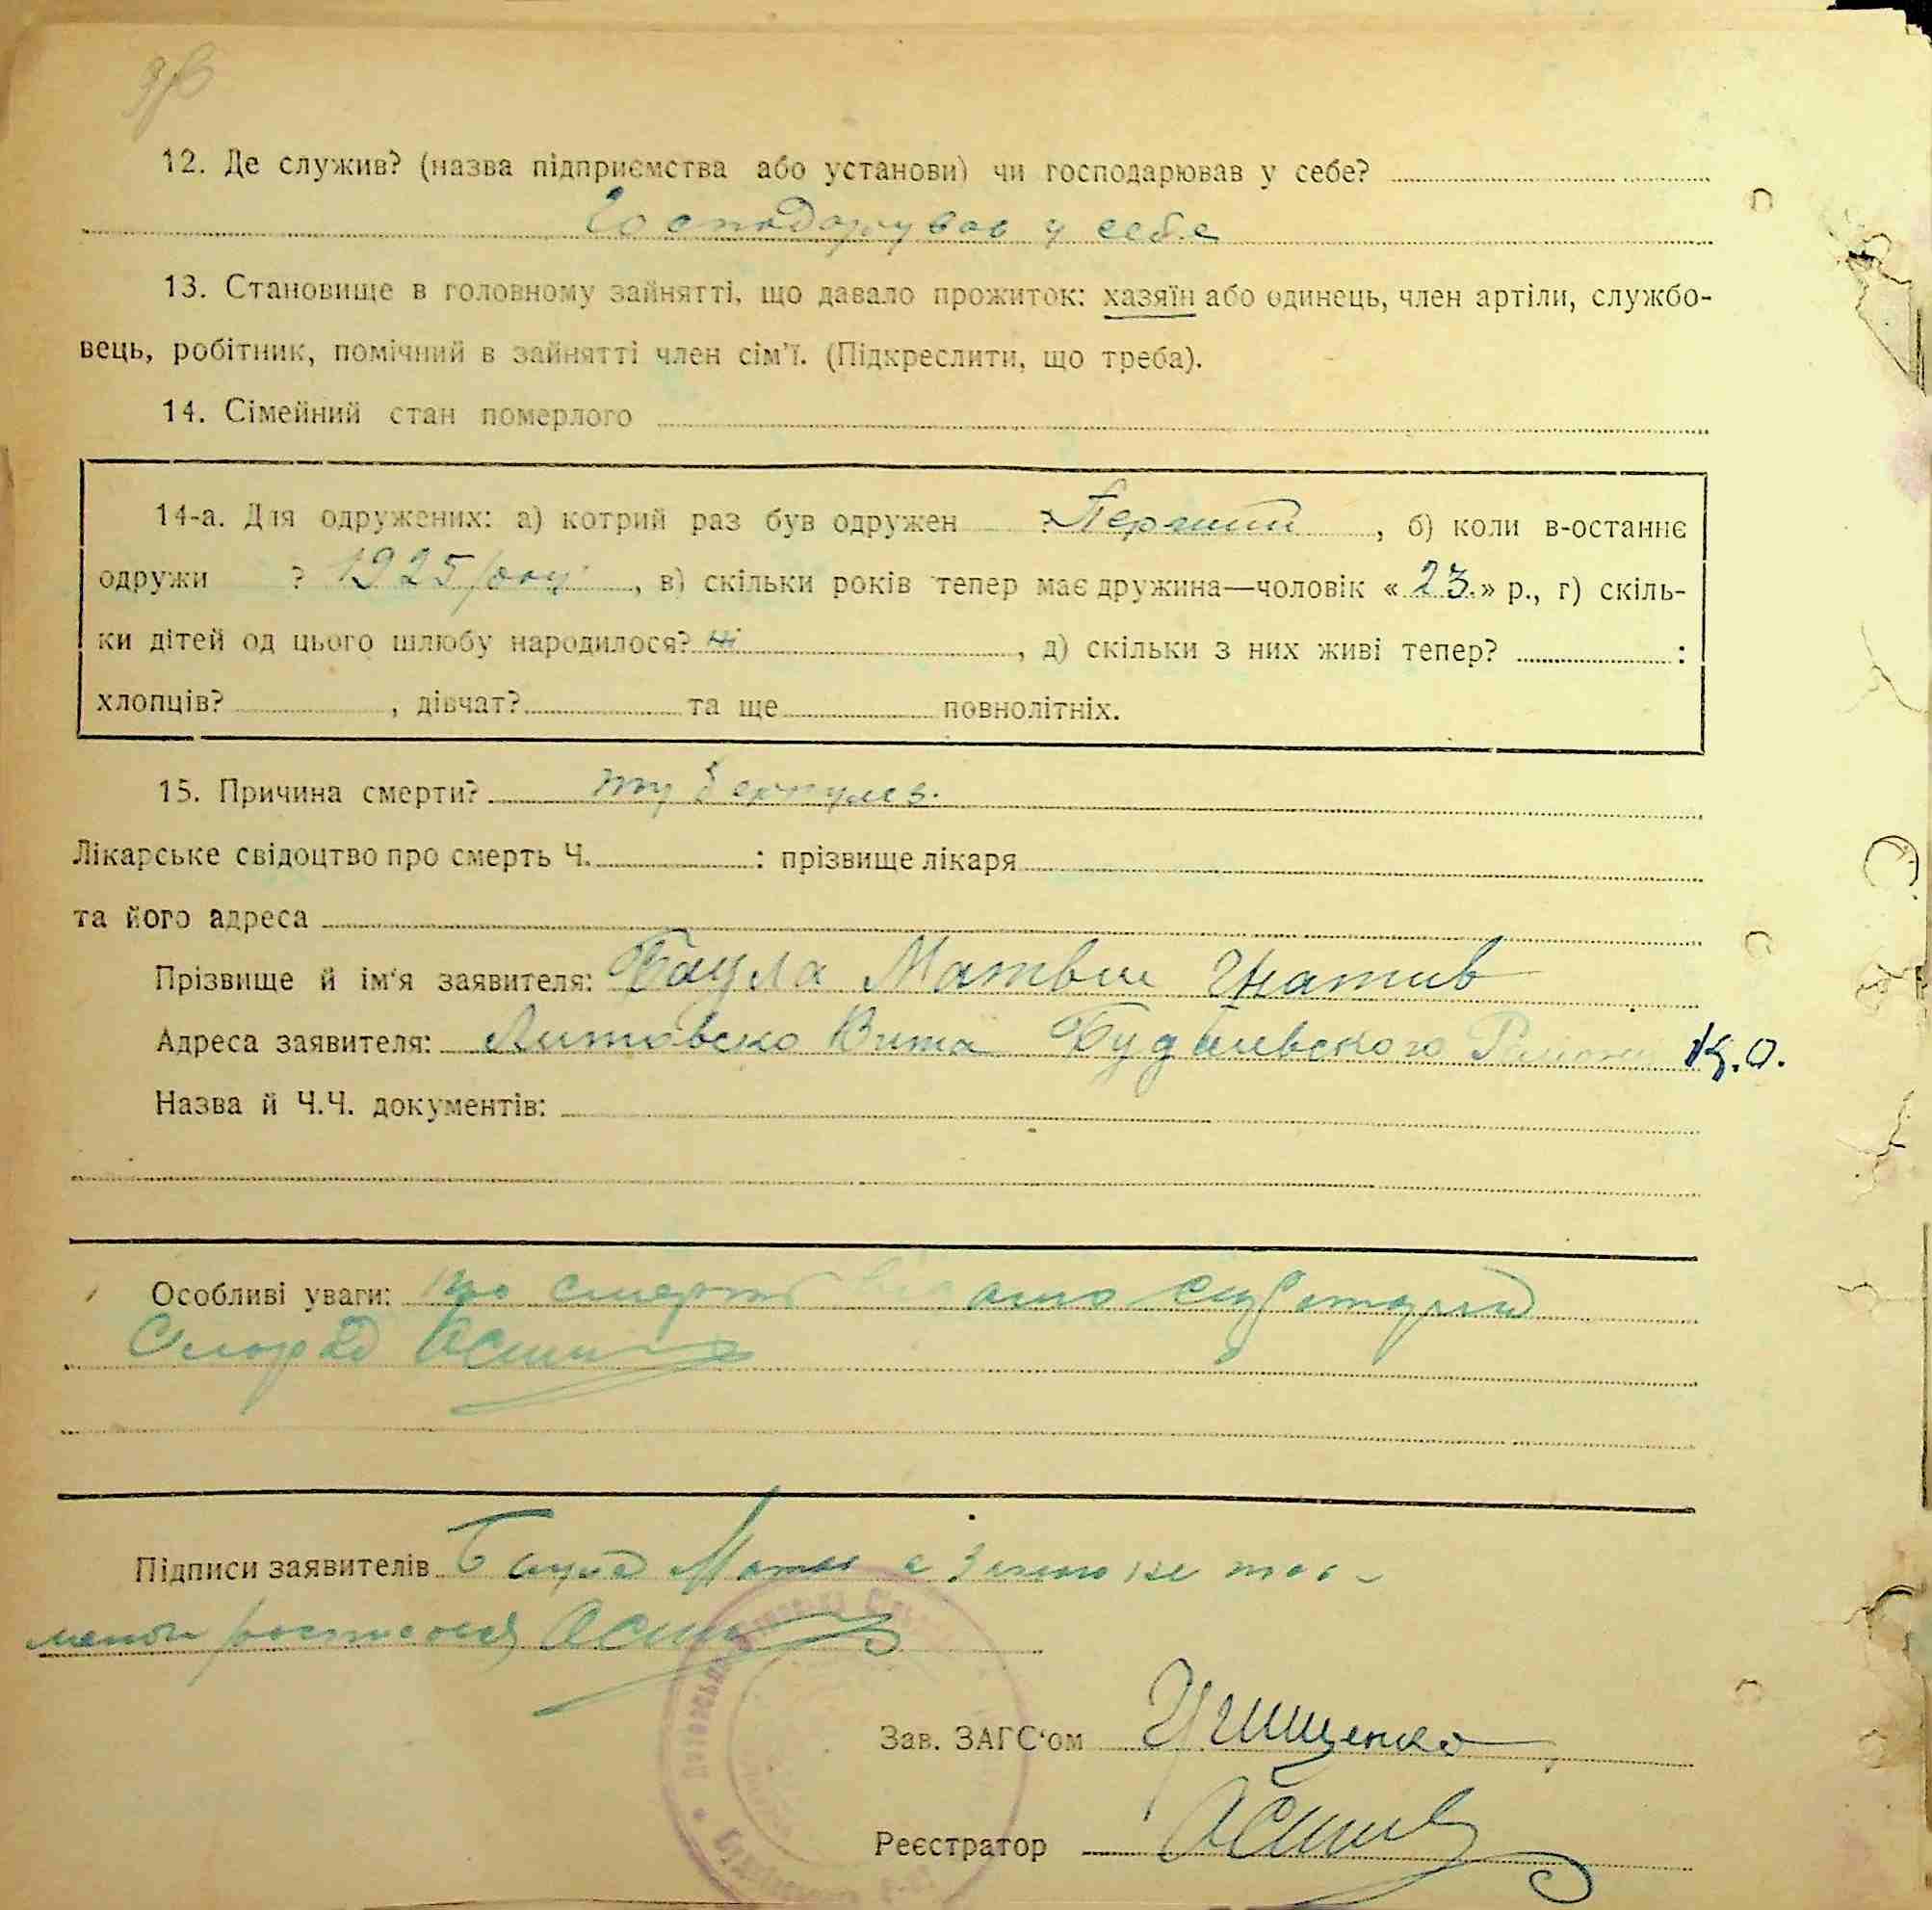 12. Де служив? (назва підприємства або установи) чи господарював у себе?
Господарував у себе
13. Становище в головному зайнятті, що давало прожиток: хазяїн або одинець, член артіли, службо-
вець, робітник, помічний в зайнятті член сім'ї. (Підкреслити, що треба).
14. Сімейний стан померлого
14-а. Для одружених: а) котрий раз був одружен ? Перший, б) коли в-останнє
одружи ? 1925 року, в) скільки років тепер має дружина—чоловік «23.» р., г) скіль-
ки дітей од цього шлюбу народилося? ні, д) скільки з них живі тепер? :
хлопців? , дівчат? та ще повнолітніх.
15. Причина смерти? туберкульоз.
Лікарське свідоцтво про смерть Ч. : прізвище лікаря
та його адреса
Прізвище й ім'я заявителя: Баула Матвій Гнатив
Адреса заявителя: Литовско Вита Будаивского Району К.О.
Назва й Ч.Ч. документів:
Особливі уваги: про смерть
Підписи заявителів Баула
Зав. ЗАГС'ом
Реєстратор